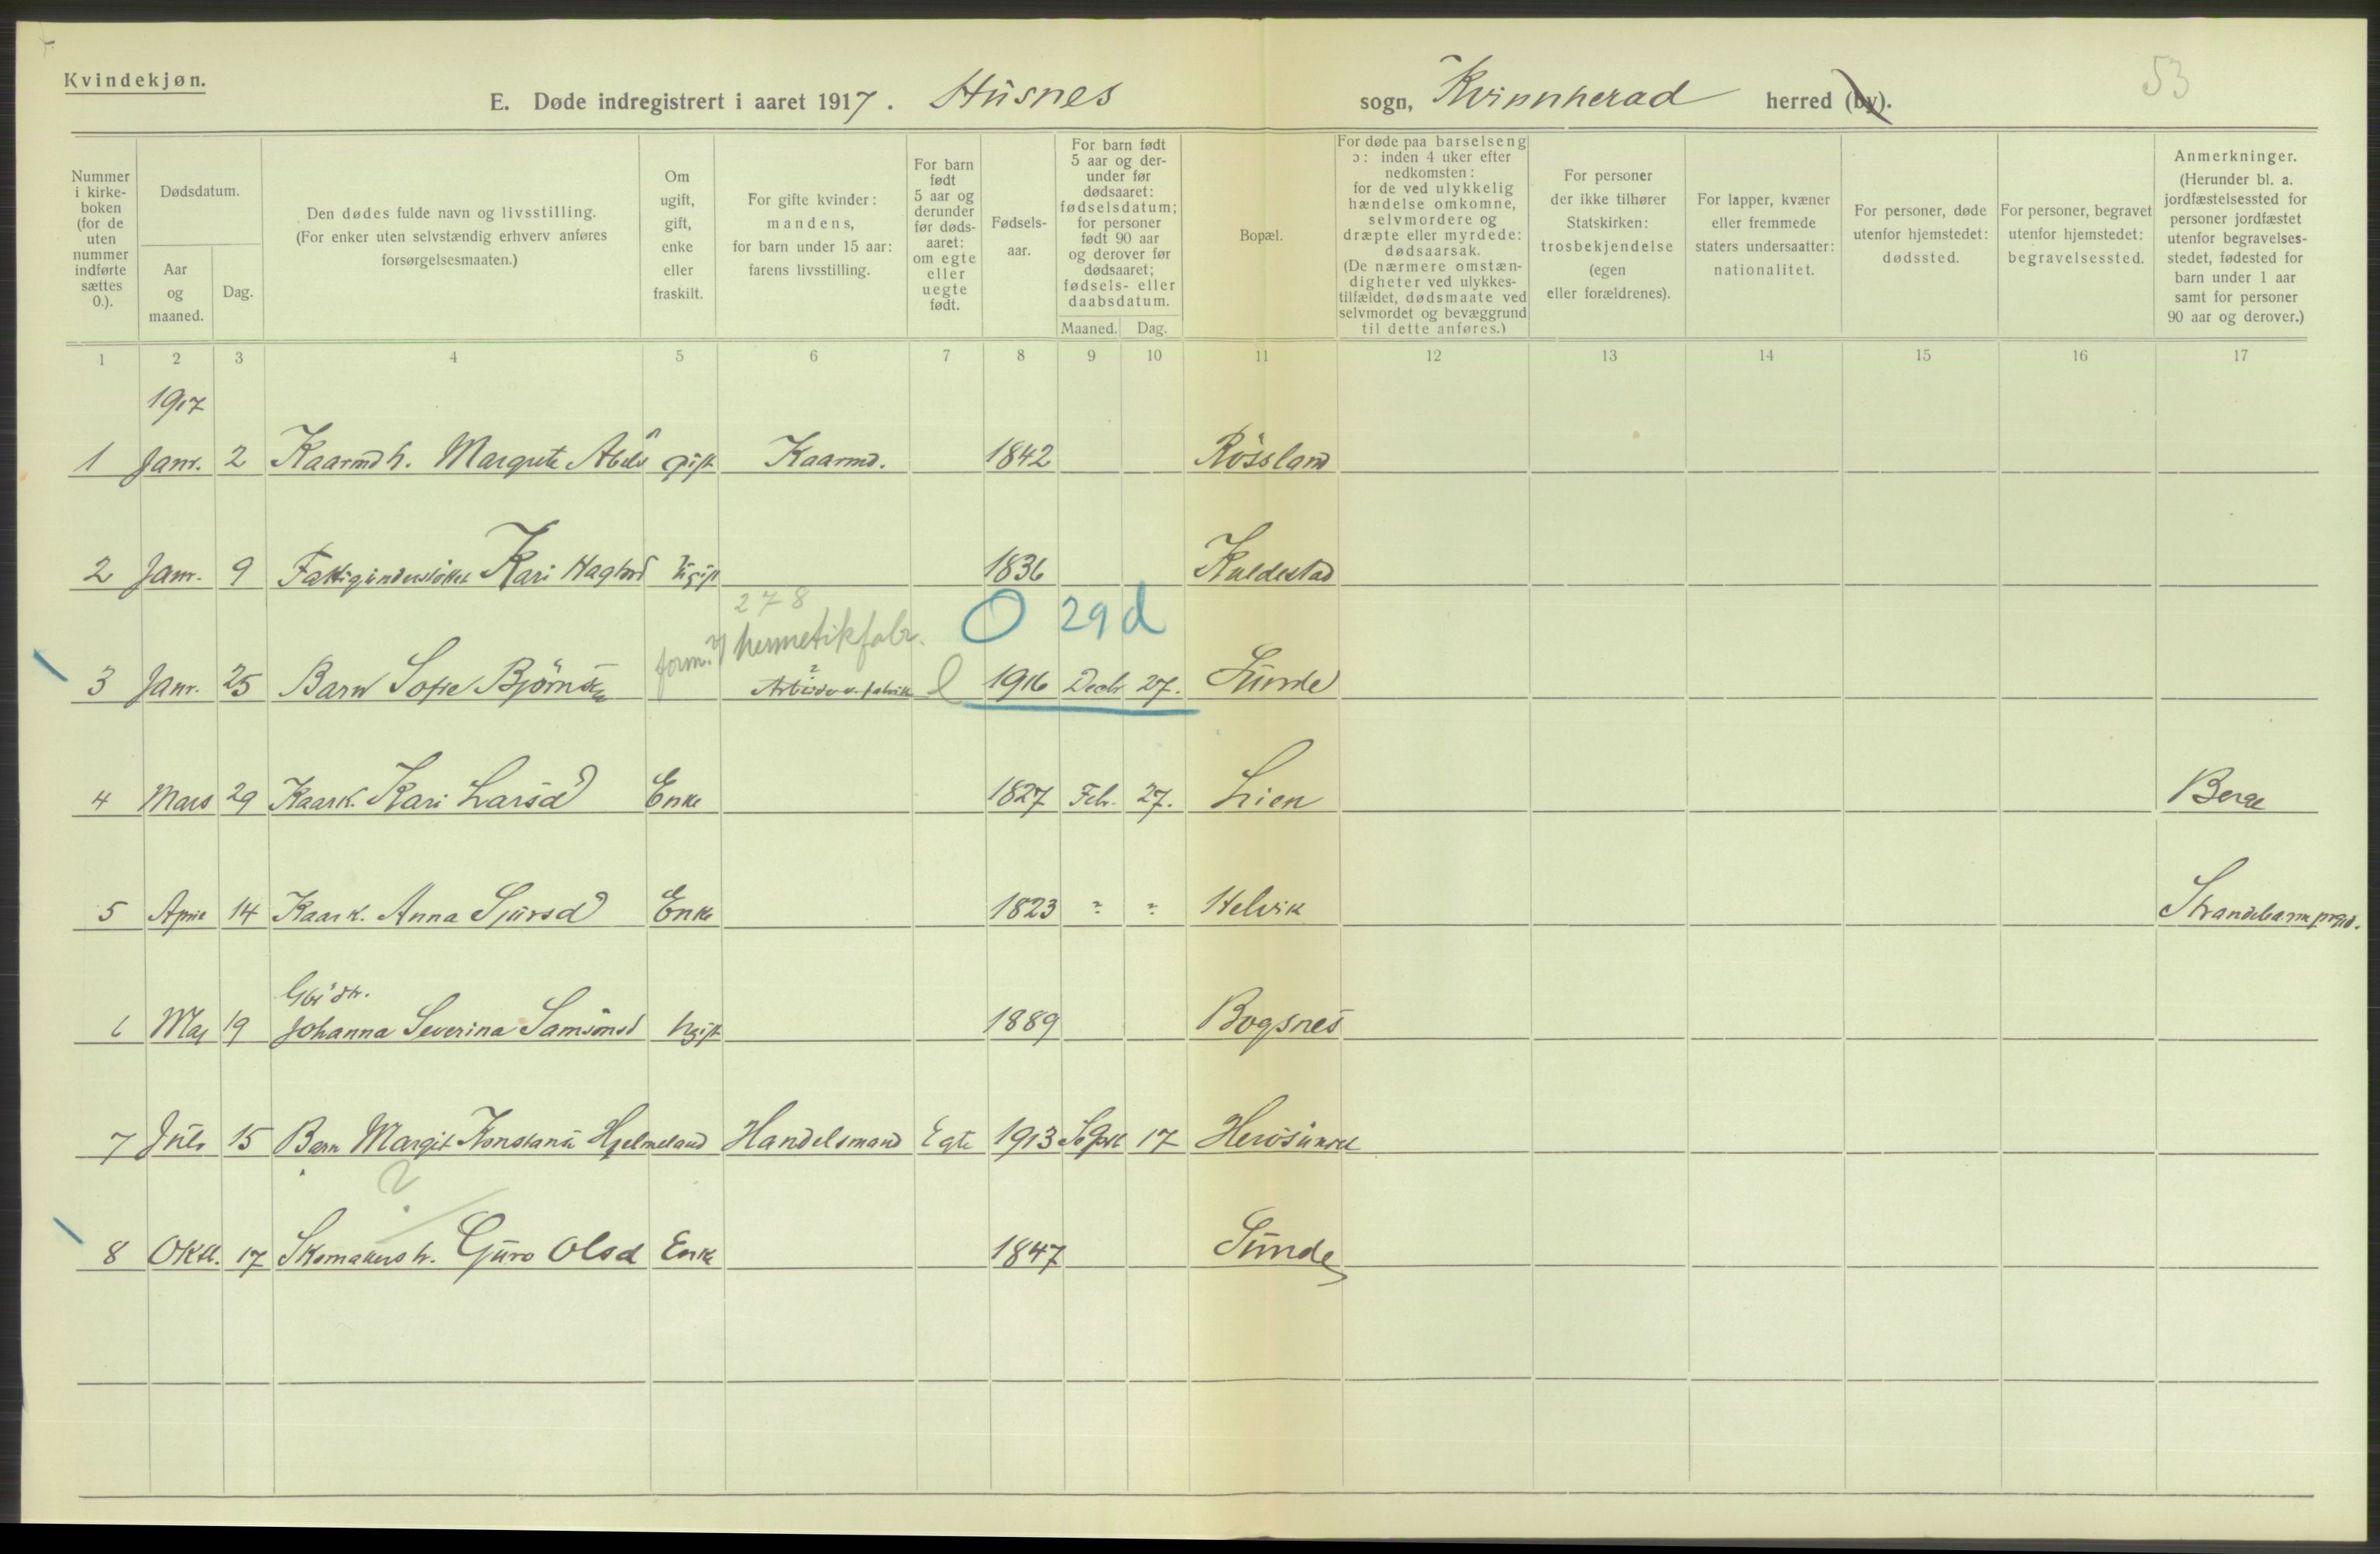 Kvindekjøn.
53
E. Døde indregistrert i aaret 1917. Husnes sogn, Kvinnherad herred (by).
Nummer i kirkeboken (for de uten nummer indførte sættes 0.).
Dødsdatum.
Aar og maaned.
Dag.
Den dødes fulde navn og livsstilling.
(For enker uten selvstændig erhverv anføres forsørgelsesmaaten.)
Om ugift, gift, enke eller fraskilt.
For gifte kvinder: mandens, for barn under 15 aar: farens livsstilling.
For barn født 5 aar og derunder før dødsaaret: om egte eller uegte født.
Fødselsaar.
For barn født 5 aar og derunder før dødsaaret: fødselsdatum; for personer født 90 aar og derover før dødsaaret; fødsels- eller daabsdatum.
Maaned. Dag.
Bopæl.
For døde paa barselseng ɔ: inden 4 uker efter nedkomsten: for de ved ulykkelig hændelse omkomne, selvmordere og dræpte eller myrdede: dødsaarsak.
(De nærmere omstændigheter ved ulykkestilfældet, dødsmaate ved selvmordet og bevæggrund til dette anføres.)
For personer der ikke tilhører Statskirken: trosbekjendelse (egen eller forældrenes).
For lapper, kvæner eller fremmede staters undersaatter: nationalitet.
For personer, døde utenfor hjemstedet: dødssted.
For personer, begravet utenfor hjemstedet: begravelsessted.
Anmerkninger.
(Herunder bl. a. jordfæstelsessted for personer jordfæstet utenfor begravelsesstedet, fødested for barn under 1 aar samt for personer 90 aar og derover.)
1 2 3 4 5 6 7 8 9 10 11 12 13 14 15 16 17
1917
1 Janr. 2 Kaarmd h. Margrete Abels gift Kaarmd. 1842 Røssland
2 Janr. 9 Fattigunderstøttet Kari Haglvd Ugift 1836 Kaldestad
278 O 29 d
form. hermetikfabr.
3 Janr. 25 Barn Sofie Bjørnsen ? Arbeider v. fabrikk 1916 Decbr 27. Sunde
4 Mars 29 Kaark. Kari Larsd Enke 1827 Feb. 27. Lien Berge
5 April 14 Kaark. Anna Sjursd Enke 1823 ? ? Helvik Strandebarm prgd.
Gbr dtr.
6 Maj 19 Johanna Severina Samsonsd Ugift 1889 Bogsnes
7 Juli 15 Barn Margit Konstanse Hjelmeland Handelsmand Egte 1913 Septbr 17 Herøsundet
?
8 Oktb. 17 Skomakers h. Guro Olsd Enke 1847 Sunde